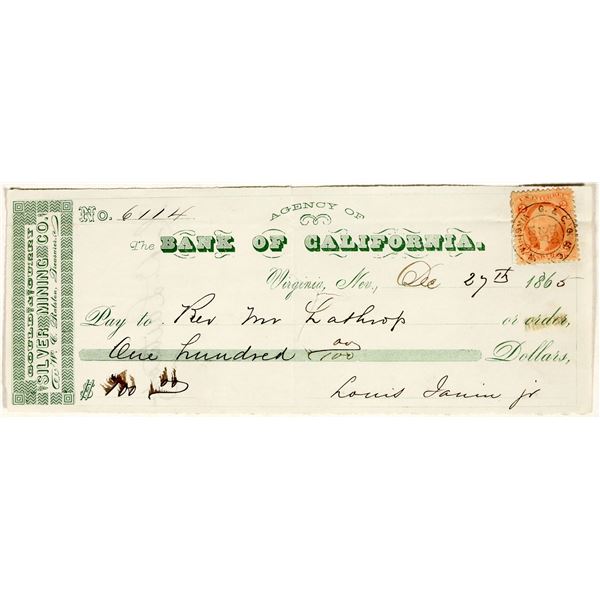 GOULD & CURRY
SILVER MINING CO.
No. 6114
AGENCY OF
The BANK OF CALIFORNIA.
Virginia, Nev., Dec 27th 1865
Pay to Rev Mr Lathrop or order,
One hundred 00/100 Dollars,
$ 100 00
Louis Janin jr